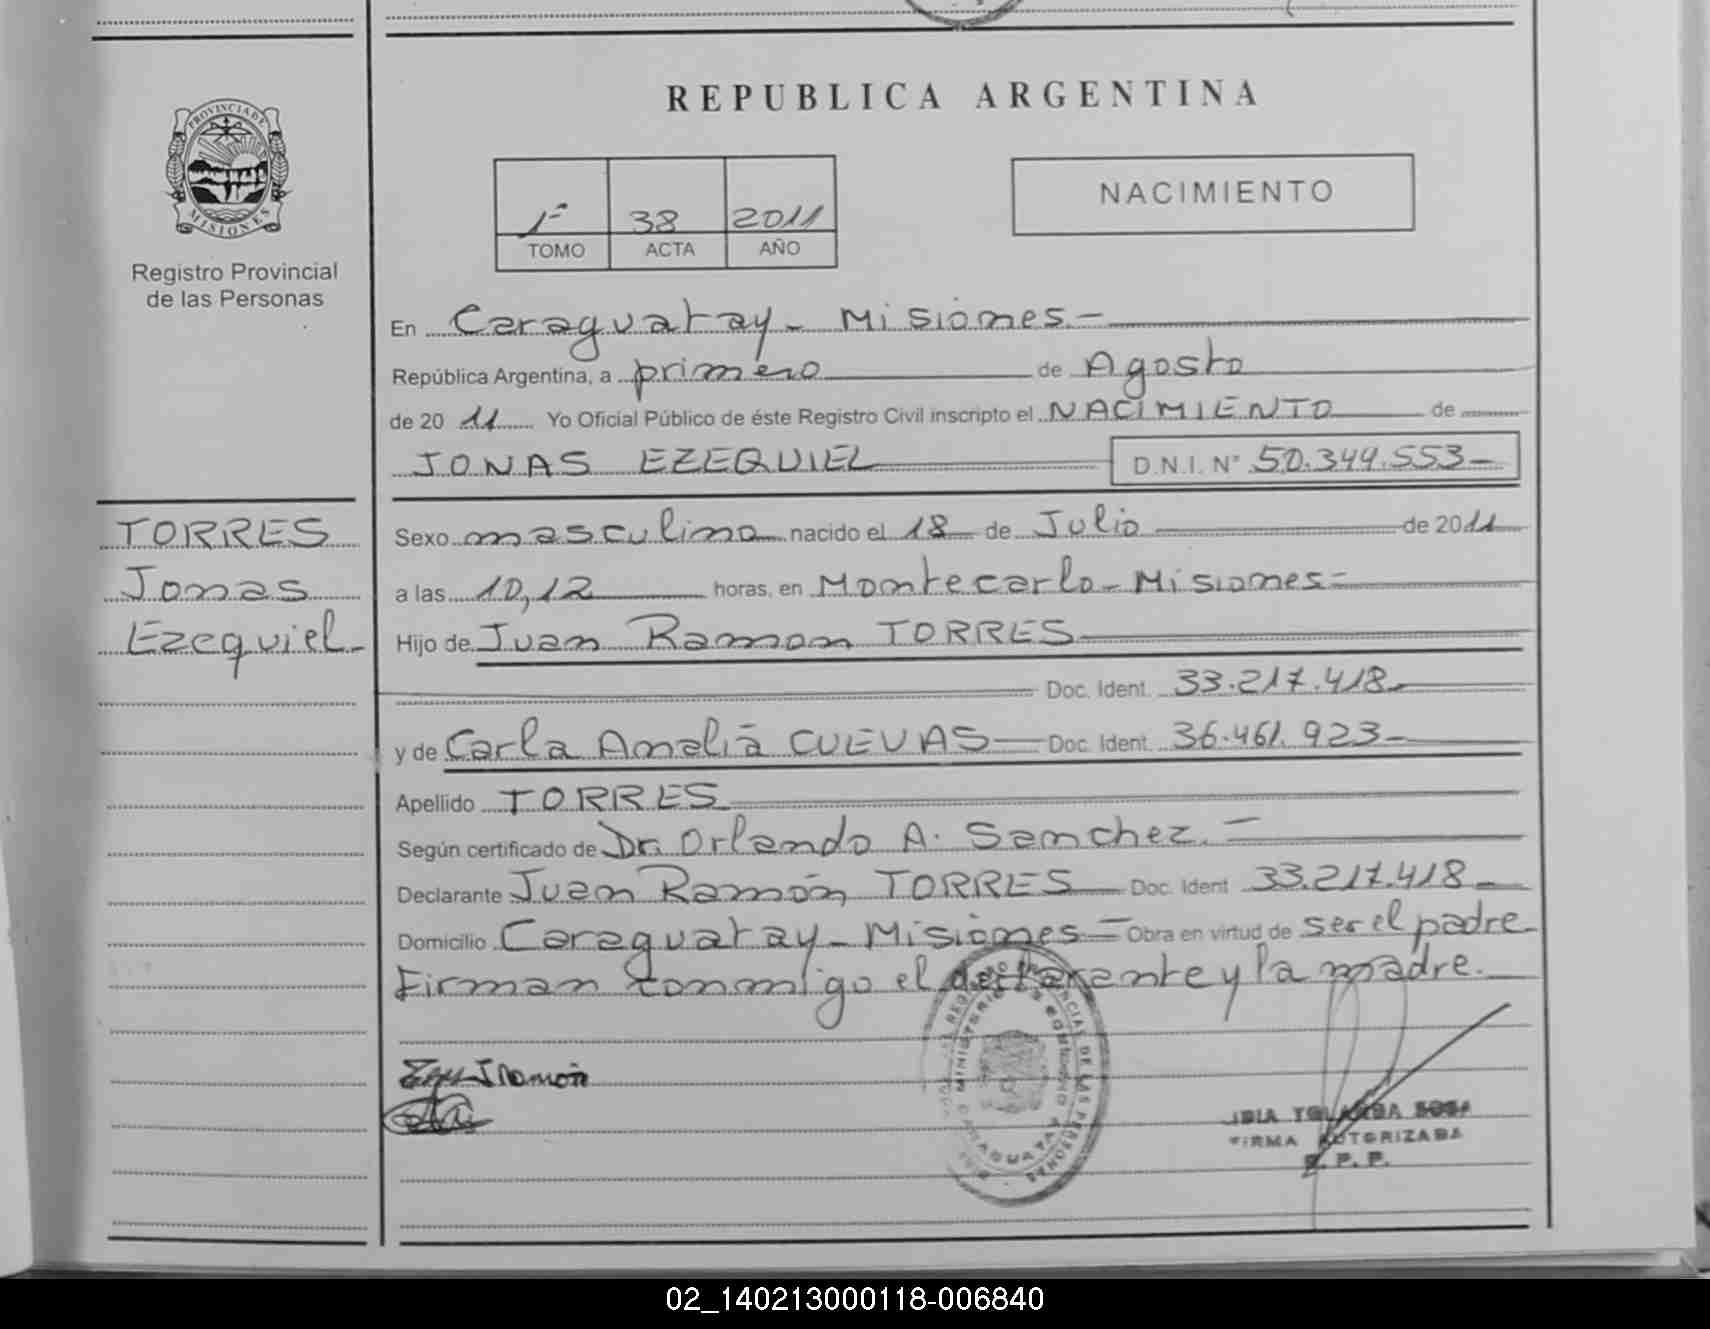 REPUBLICA ARGENTINA
PROVINCIA DE
MISIONES
Registro Provincial
de las Personas
38 2011
TOMO ACTA AÑO
NACIMIENTO
En Caraguatay - Misiones.-
República Argentina, a primero de Agosto
de 20 11 Yo Oficial Público de éste Registro Civil inscripto el NACIMIENTO de
JONAS EZEQUIEL D.N.I. N° 50.349.553-
TORRES
Jonas
Ezequiel-
Sexo masculino nacido el 18 de Julio de 2011
a las 10,12 horas, en Montecarlo - Misiones=
Hijo de Juan Ramon TORRES
Doc. Ident. 33.217.418-
y de Carla Amalia CUEVAS- Doc. Ident. 36.461.923-
Apellido TORRES
Según certificado de Dr. Orlando A. Sanchez.=
Declarante Juan Ramón TORRES Doc. Ident 33.217.418-
Domicilio Caraguatay - Misiones= Obra en virtud de ser el padre
Firman conmigo el declarante y la madre.
Ramón
FIRMA AUTORIZADA
R. P. P.
02_140213000118-006840